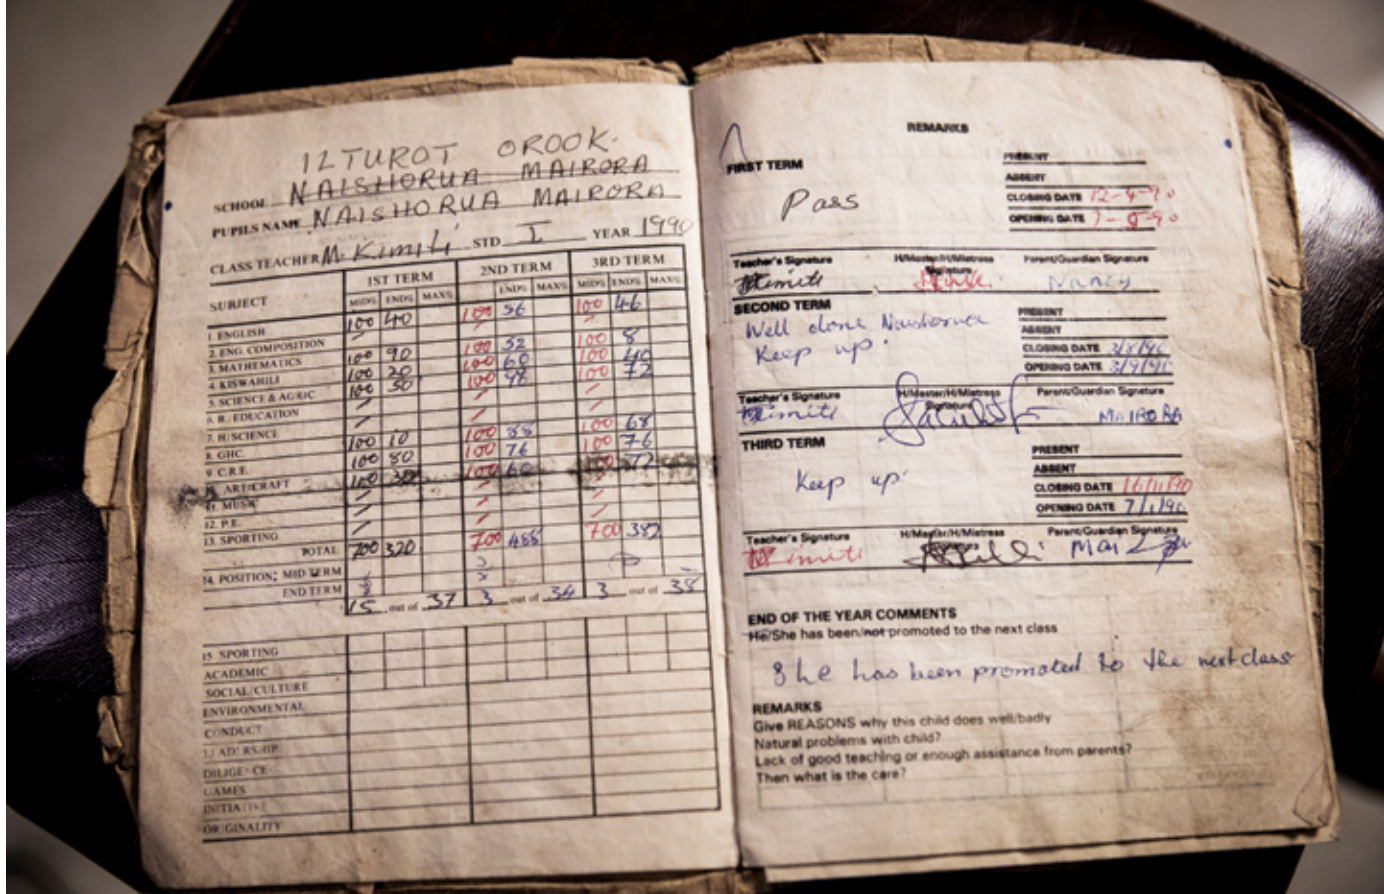 ILTUROT OROOK.
SCHOOL NAISHORUA MAIRORA
PUPILS NAME NAISHORUA MAIRORA
CLASS TEACHER M. Kimiti STD I YEAR 1990
SUBJECT 1ST TERM 2ND TERM 3RD TERM
MID% END% MAX% END% MAX% MID% END% MAX%
1. ENGLISH 100 40 100 56 100 46
2. ENG. COMPOSITION
3. MATHEMATICS 100 90 100 52 100 8
4. KISWAHILI 100 20 100 60 100 40
5. SCIENCE & AGRIC 100 50 100 98 100 72
6. B/EDUCATION
7. H/SCIENCE
8. GHC. 100 10 100 88 100 68
9. C.R.E. 100 80 100 76 100 76
ART/CRAFT 100 30 100 60
11. MUSIC
12. P.E.
13. SPORTING
TOTAL 700 320 700 488 700 382
14. POSITION: MID TERM
END TERM
15 out of 37 3 out of 34 3 out of 38
15 SPORTING
ACADEMIC
SOCIAL/CULTURE
ENVIRONMENTAL
CONDUCT
DILIGENCE
GAMES
ORIGINALITY
REMARKS
FIRST TERM
PRESENT
ABSENT
Pass
CLOSING DATE 12-4-90
OPENING DATE
Teacher's Signature H/Master/H/Mistress Signature Parent/Guardian Signature
Kimiti Nancy
SECOND TERM
PRESENT
Well done Naishorua
ABSENT
Keep up.
CLOSING DATE 3/8/90
OPENING DATE 3/9/90
Teacher's Signature H/Master/H/Mistress Signature Parent/Guardian Signature
Kimiti MAIRORA
THIRD TERM
PRESENT
ABSENT
Keep up
CLOSING DATE 16/11/90
OPENING DATE
Teacher's Signature H/Master/H/Mistress Parent/Guardian Signature
Kimiti
END OF THE YEAR COMMENTS
He/She has been/not promoted to the next class
She has been promoted to the next class
REMARKS
Give REASONS why this child does well/badly
Natural problems with child?
Lack of good teaching or enough assistance from parents?
Then what is the care?